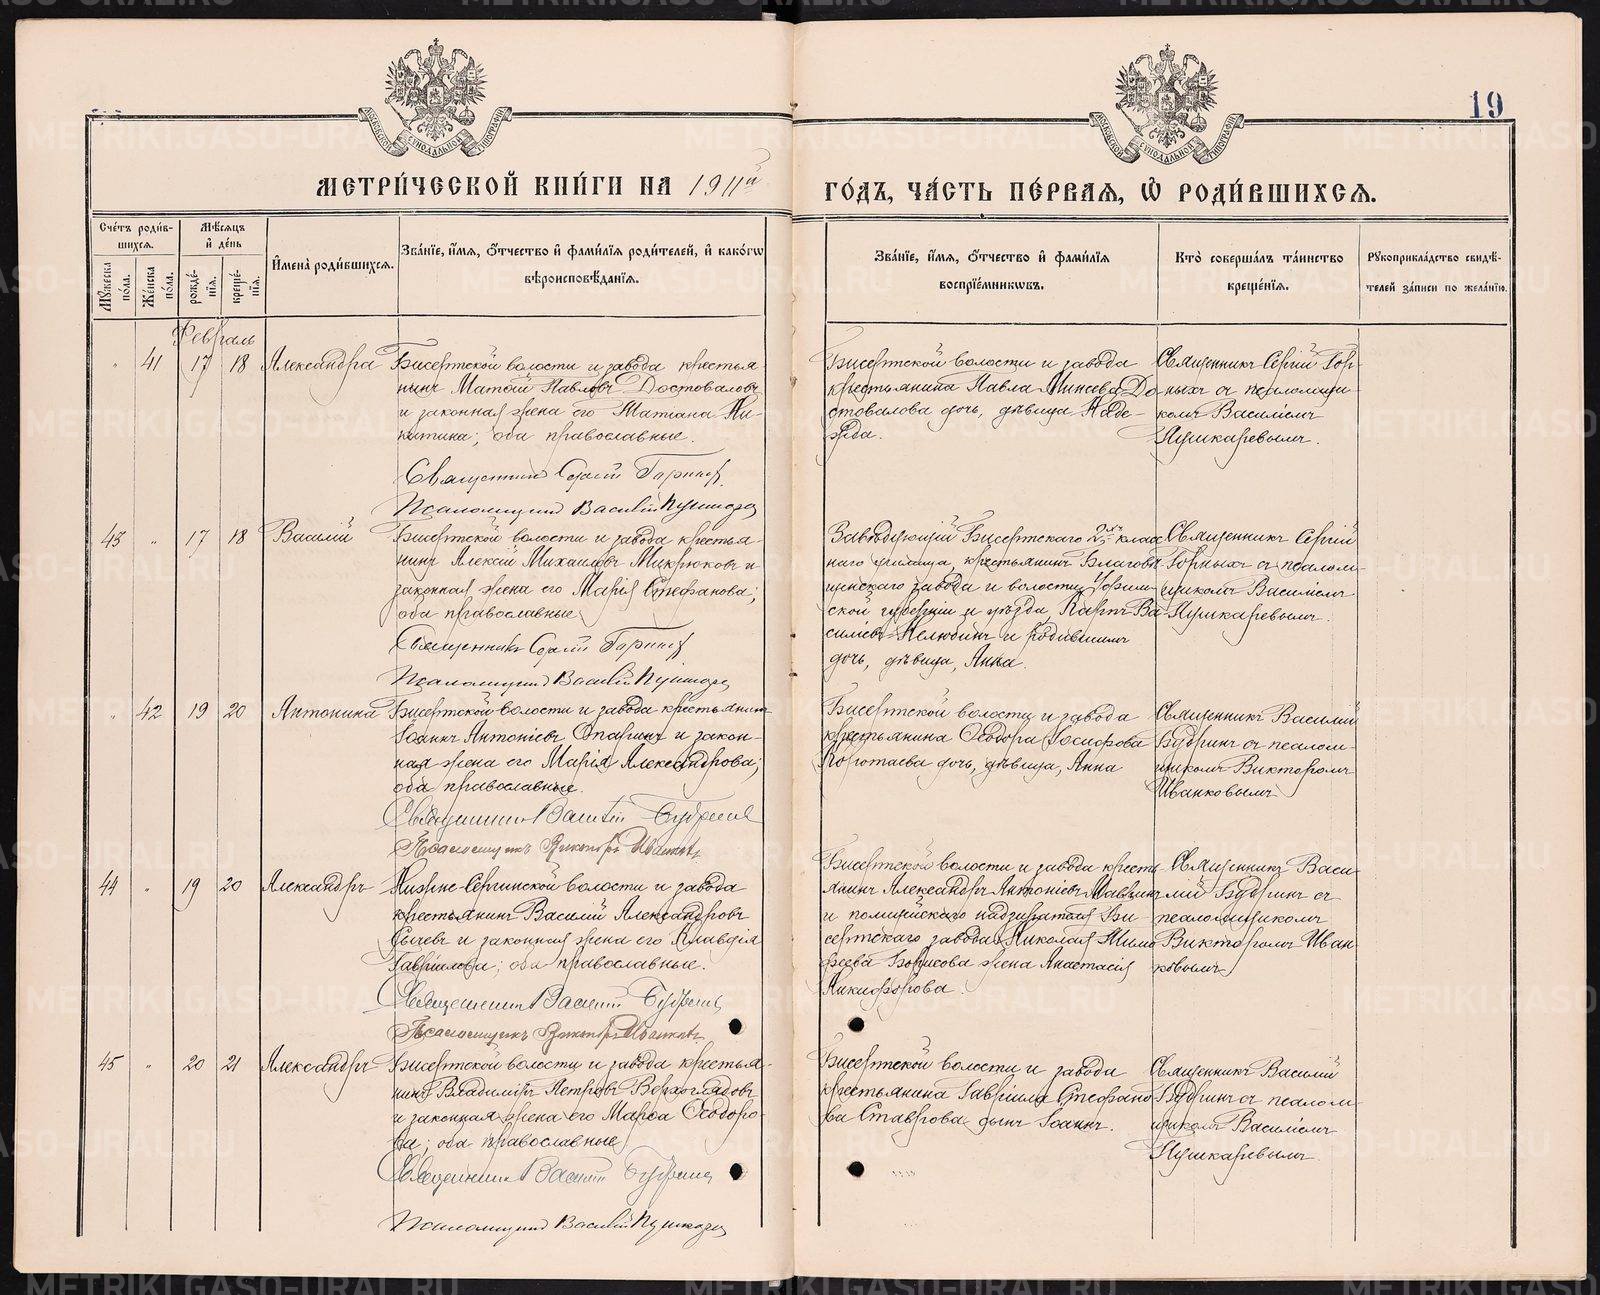 19
МОСКОВСКОЙ СѴНОДАЛЬНОЙ ТИПОГРАФІИ
МОСКОВСКОЙ СѴНОДАЛЬНОЙ ТИПОГРАФІИ
МЕТРИ́ЧЕСКОЙ КНИ́ГИ НА 1911й
ГО́ДЪ, ЧА́СТЬ ПЕ́РВАЯ, Ѡ РОДИ́ВШИХСЯ.
Сче́тъ роди́в-
шихся.
Му́жеска по́ла.
Же́нска по́ла.
Мѣ́сяцъ
и де́нь
рожде́-
нїя.
креще́-
нїя.
И̓мена̀ роди́вшихся.
Зва́нїе, и́мя, о́тчество и фами́лїя роди́телей, и како́гѡ
вѣроисповѣ́данїя.
Зва́нїе, и́мя, о́тчество и фами́лїя
воспрїе́мникѡвъ.
Кто̀ соверша́лъ та́инство
креще́нїя.
Рукоприкла́дство свидѣ́-
телей за́писи по жела́нїю.
Февраль
" 41 17 18 Александра
Бисертской волости и завода крестья-
нинъ Матѳій Павловъ Достоваловъ
и законная жена его Татіана Ни-
китина; оба православные.
Священникъ Сергій Горныхъ
Псаломщикъ Василій Пушкарев
Бисертской волости и завода
крестьянина Павла Минеева До-
стовалова дочь, дѣвица Наде-
жда.
Священникъ Сергій Гор-
ныхъ съ псаломщи-
комъ Василіемъ
Пушкаревымъ.
43 " 17 18 Василій
Бисертской волости и завода крестья-
нинъ Алексій Михаиловъ Микрюковъ и
законная жена его Марія Стефанова;
оба православные
Священникъ Сергій Горныхъ
Псаломщикъ Василій Пушкарев
Завѣдующій Бисертскаго 2хъ клас-
наго училища, крестьянинъ Благовѣ-
щенскаго завода и волости, Уфим-
ской губерніи и уѣзда Карпъ Ва-
силіевъ Нелюбинъ и родившимъ
дочь, дѣвица, Анна.
Священникъ Сергій
Горныхъ съ псалом-
щикомъ Василіемъ
Пушкаревымъ.
" 42 19 20 Антонина
Бисертской волости и завода крестьянинъ
Іоаннъ Антоніевъ Опаринъ и закон-
ная жена его Марія Александрова;
оба православные.
Священникъ Василій Будринъ
Псаломщикъ Викторъ Иванковъ
Бисертской волости и завода
крестьянина Ѳеодора Іосифова
Коротаева дочь, дѣвица, Анна
Священникъ Василій
Будринъ съ псалом-
щикомъ Викторомъ
Иванковымъ
44 " 19 20 Александръ
Нижне-Сергинской волости и завода
крестьянинъ Василій Александровъ
Сычевъ и законная жена его Клавдія
Гавріилова; оба православные.
Священникъ Василій Будринъ
Псаломщикъ Викторъ Иванковъ
Бисертской волости и завода кресть-
янинъ Александръ Антоніевъ
и полицейскаго надзирателя Би-
сертскаго завода Николая Тимо-
феева Борисова жена Анастасія
Никифорова.
Священникъ Васи-
лій Будринъ съ
псаломщикомъ
Викторомъ Иван-
ковымъ
45 " 20 21 Александръ
Бисертской волости и завода крестья-
нинъ Владиміръ Петровъ Верхоглядовъ
и законная жена его Марѳа Ѳеодоро-
ва; оба православные
Священникъ Василій Будринъ
Псаломщикъ Василій Пушкарев
Бисертской волости и завода
крестьянина Гавріила Стефано-
ва Ставрова сынъ Іоаннъ.
Священникъ Василій
Будринъ съ псалом-
щикомъ Василіемъ
Пушкаревымъ